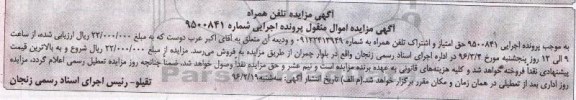 آگهی مزایده تلفن همراه
آگهی مزایده اموال منقول پرونده اجرایی شماره ۹۵۰۰۸۴۱
به موجب پرونده اجرایی ۹۵۰۰۸۴۱ حق امتیاز و اشتراک تلفن همراه به شماره ۰۹۱۲۲۴۱۳۹۲۹ و ودیعه آن متعلق به آقای اکبر عرب دوست که به مبلغ ۲۲/۰۰۰/۰۰۰ ریال ارزیابی شده، از ساعت
۹ الی ۱۲ روز پنجشنبه مورخ ۹۶/۳/۴ در اداره اجرای اسناد رسمی زنجان واقع در بلوار چمران از طریق مزایده به فروش می‌رسد. مزایده از مبلغ ۲۲/۰۰۰/۰۰۰ ریال شروع و به بالاترین قیمت
پیشنهادی نقداً فروخته خواهد شد و کلیه هزینه‌های قانونی به عهده برنده مزایده است و نیم عشر و حق مزایده نقداً وصول خواهد شد، ضمناً چنانچه روز مزایده تعطیل رسمی اعلام گردد، مزایده
روز اداری بعد از تعطیلی در همان زمان و مکان مقرر برگزار خواهد شد. (م الف) تاریخ انتشار آگهی: سه‌شنبه ۹۶/۲/۱۹
تقیلو- رئیس اجرای اسناد رسمی زنجان